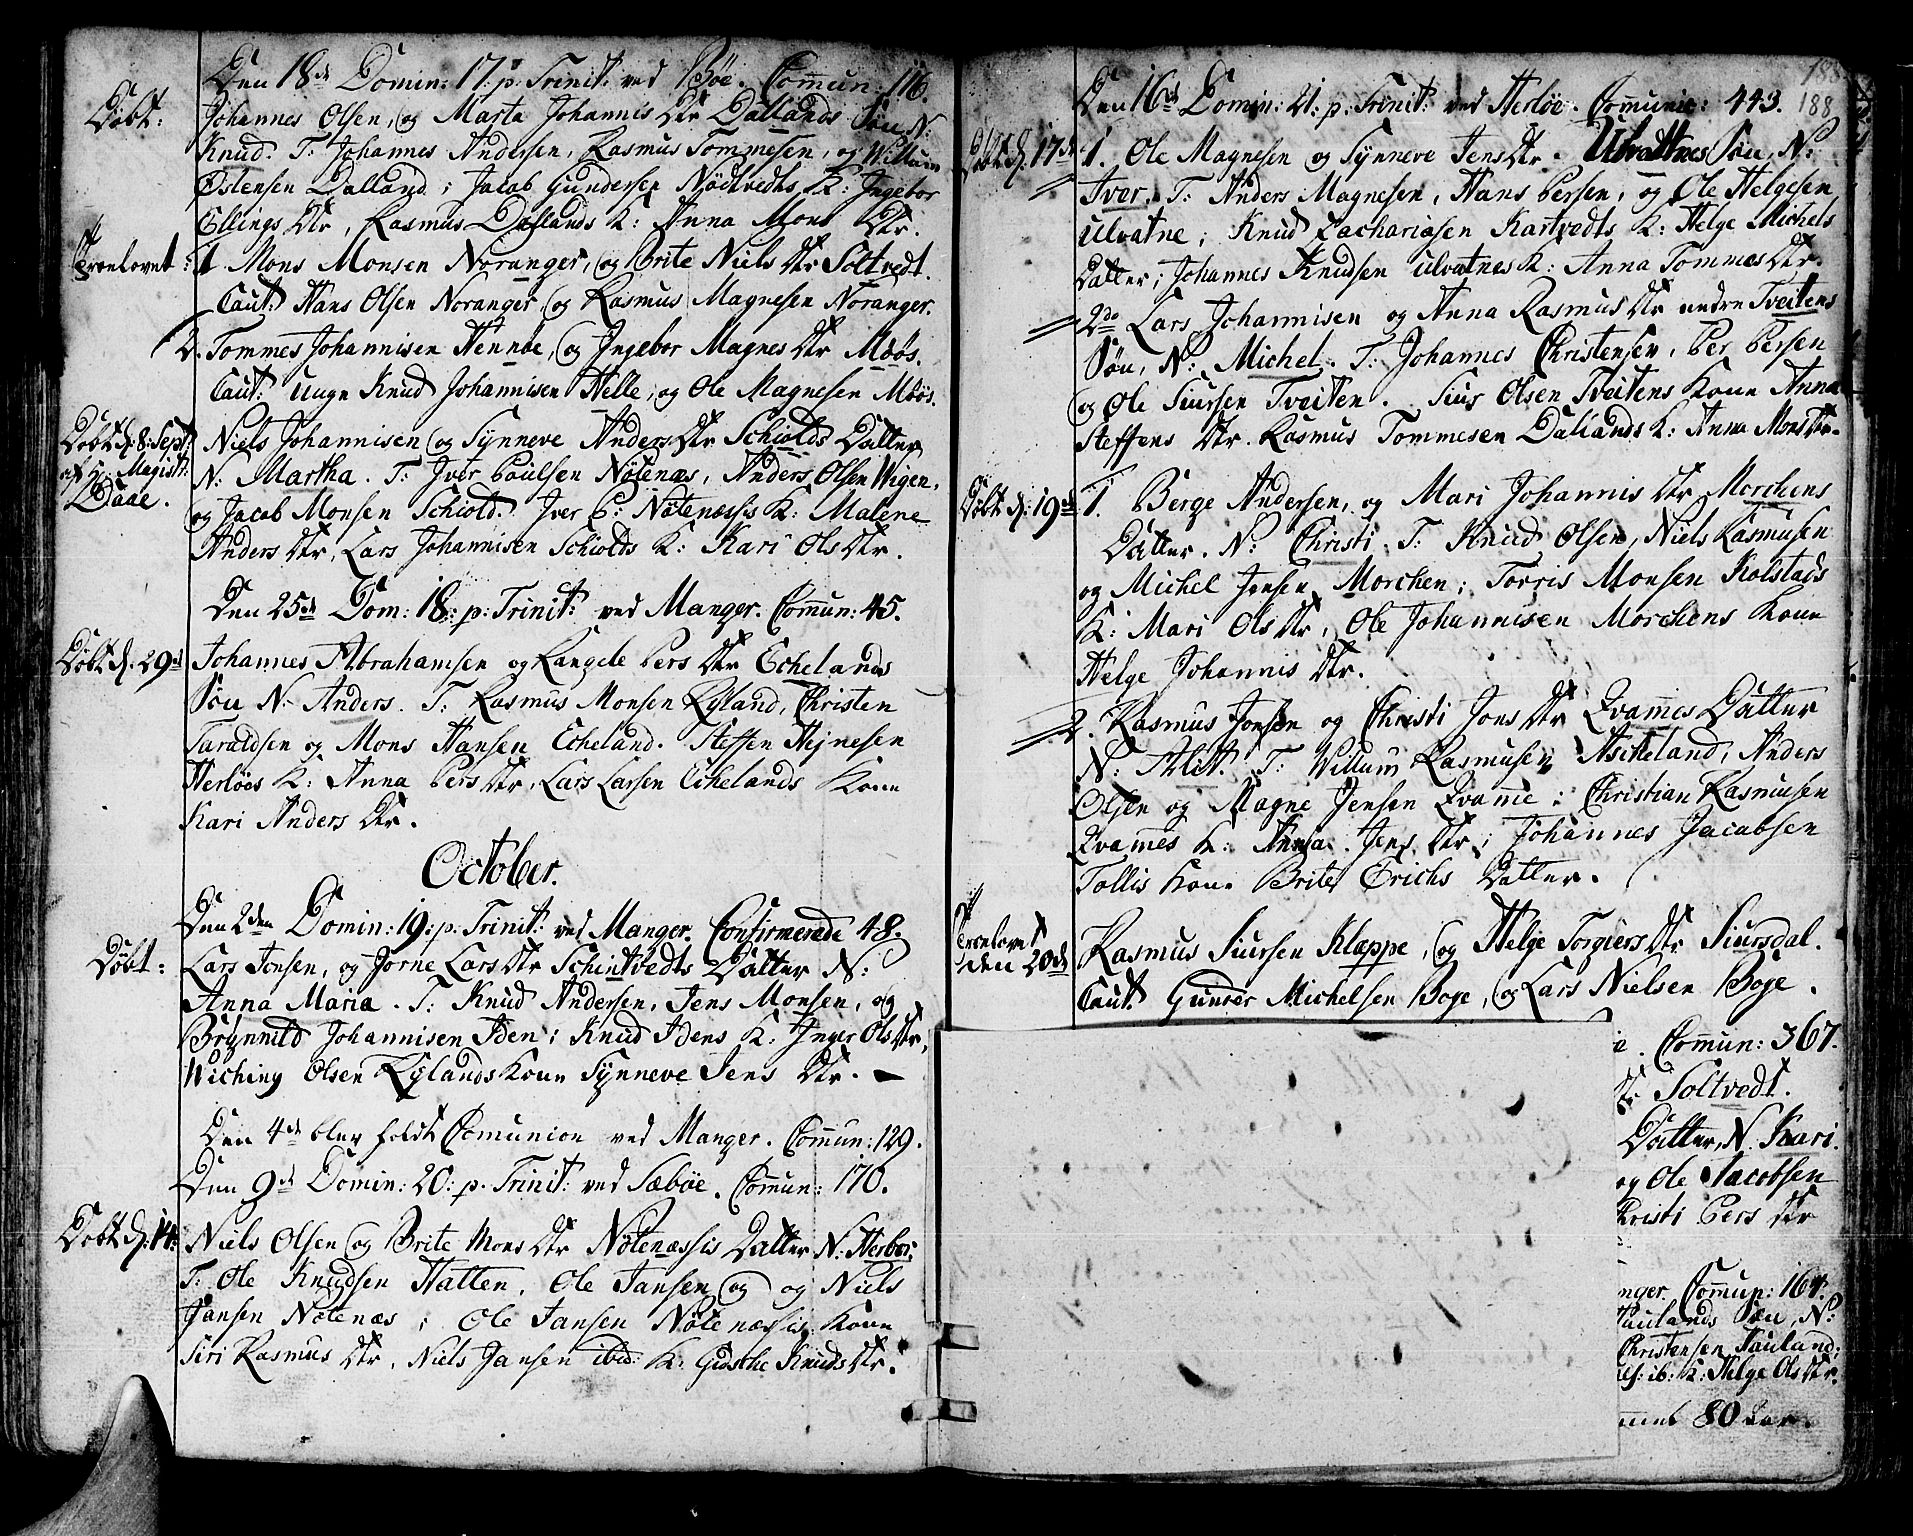 Den 18de Domin: 17. p. Trinit: ved Bøe. Commun: 116.
Døbt:
Johannes Olsen, og Marta Johannis Dtr Dallands Søn N:
Knud. T: Johannes Andersen, Rasmus Tommesen, og Willum
Østensen Dalland; Jacob Gundersen Nødtvedts K: Ingebor
Ellings Dtr, Rasmus Dallands K: Anna Mons Dtr.
Troelovet:
1. Mons Monsen Noranger, og Brite Niels Dtr Soltvedt.
Caut: Hans Olsen Noranger og Rasmus Magnesen Noranger.
2. Tommes Johannisen Hennøe, og Ingebor Magnes Dtr Miøs.
Caut: Unge Knud Johannisen Helle, og Ole Magnesen Miøs.
Døbt d: 8: Sept:
af Hr: Magist:
Daae.
Niels Johannisen og Synneve Anders Dtr Schiolds Datter
N: Martha. T: Iver Poulsen Nøtenæs, Anders Olsen Wigen,
og Jacob Monsen Schiold. Iver P: Nøtenæssis K: Malene
Anders Dtr, Lars Johannisen Schiolds K: Kari Ols Dtr.
Den 25de Dom: 18: p: Trinit: ved Manger. Commun: 45.
Døbt d: 29de
Johannes Abrahamsen og Rangele Pers Dtr Echelands
Søn N: Anders. T: Rasmus Monsen Ryland, Christen
Taraldsen og Mons Hansen Echeland. Steffen Hejnesen
Herløes K: Anna Pers Dtr, Lars Larsen Echelands Kone
Kari Anders Dtr.
October.
Den 2den Domin: 19: p. Trinit: ved Manger. Confirmerede 48.
Døbt:
Lars Jonsen, og Jorne Lars Dtr Schintvedts Datter N:
Anna Maria. T: Knud Andersen, Jens Monsen, og
Brynnild Johannisen Iden; Knud Idens K: Inger Ols Dtr,
Wiching Olsen Rylands Kone Synneve Jens Dtr.
Den 4de blev holdt Communion ved Manger. Commun: 129.
Den 9de Domin: 20: p. Trinit: ved Sæbøe. Commun: 170.
Døbt d: 14:
Niels Olsen og Brite Mons Dtr Nøtenæssis Datter N: Herbor.
T: Ole Knudsen Hatten, Ole Jansen og og Niels
Jansen Nøtenæs; Ole Jansen Nøtenæssis Kone
Siri Rasmus Dtr, Niels Jansen ibid: K: Giøsche Knuds Dtr.
188
188
Den 16de Domin: 21: p. Trinit: ved Herløe. Communic: 443.
Døbt d: 17de
1. Ole Magnesen og Synneve Jens Dtr. Ulvattnes Søn, N:
Iver. T: Anders Magnesen, Hans Persen, og Ole Helgesen
Ulvatne; Knud Zachariasen Kartvedts K: Helge Michels
Datter; Johannes Knudsen Ulvatnes K: Anna Tommes Dtr.
2do Lars Johannisen og Anna Rasmus Dtr nedre Tveitens
Søn, N: Michel. T: Johannes Christensen, Per Persen
og Ole Siursen Tveiten. Siur Olsen Tveitens Kone Anna
Steffens Dtr. Rasmus Tommesen Dallands K: Anna Mons Dtr.
Døbt d: 19de
1. Berge Andersen, og Mari Johannis Dtr Morchens
Datter. N: Christi. T: Knud Olsen, Niels Rasmusen
og Michel Jensen Morchen; Torris Monsen Kolstads
K: Mari Ols Dtr, Ole Johannisen Morchens Kone
Helge Johannis Dtr.
2. Rasmus Jonsen og Christi Jons Dtr Qvammes Datter
N: Alit. T: Willum Rasmusen Ascheland, Anders
Olsen og Magne Jensen Qvamme; Christian Rasmusen
Qvammes K: Anna Jens Dtr; Johannes Jacobsen
Tollis Kone Brite Erichs Datter.
Troelovet
den 20de
Rasmus Siursen Klæppe, og Helje Torgiers Dtr Siursdal.
Caut: Gunder Michelsen Boge, og Lars Nielsen Boge.
e. Commun: 367.
Dtr Soltvedt.
Datter, N. Kari.
og Ole Jacobsen
Christi Pers Dtr
nger. Commun: 164.
Taulands Søn, N:
Christensen Tauland;
els: ib: K: Helge Ols Dtr.
mmel 80 Aar.